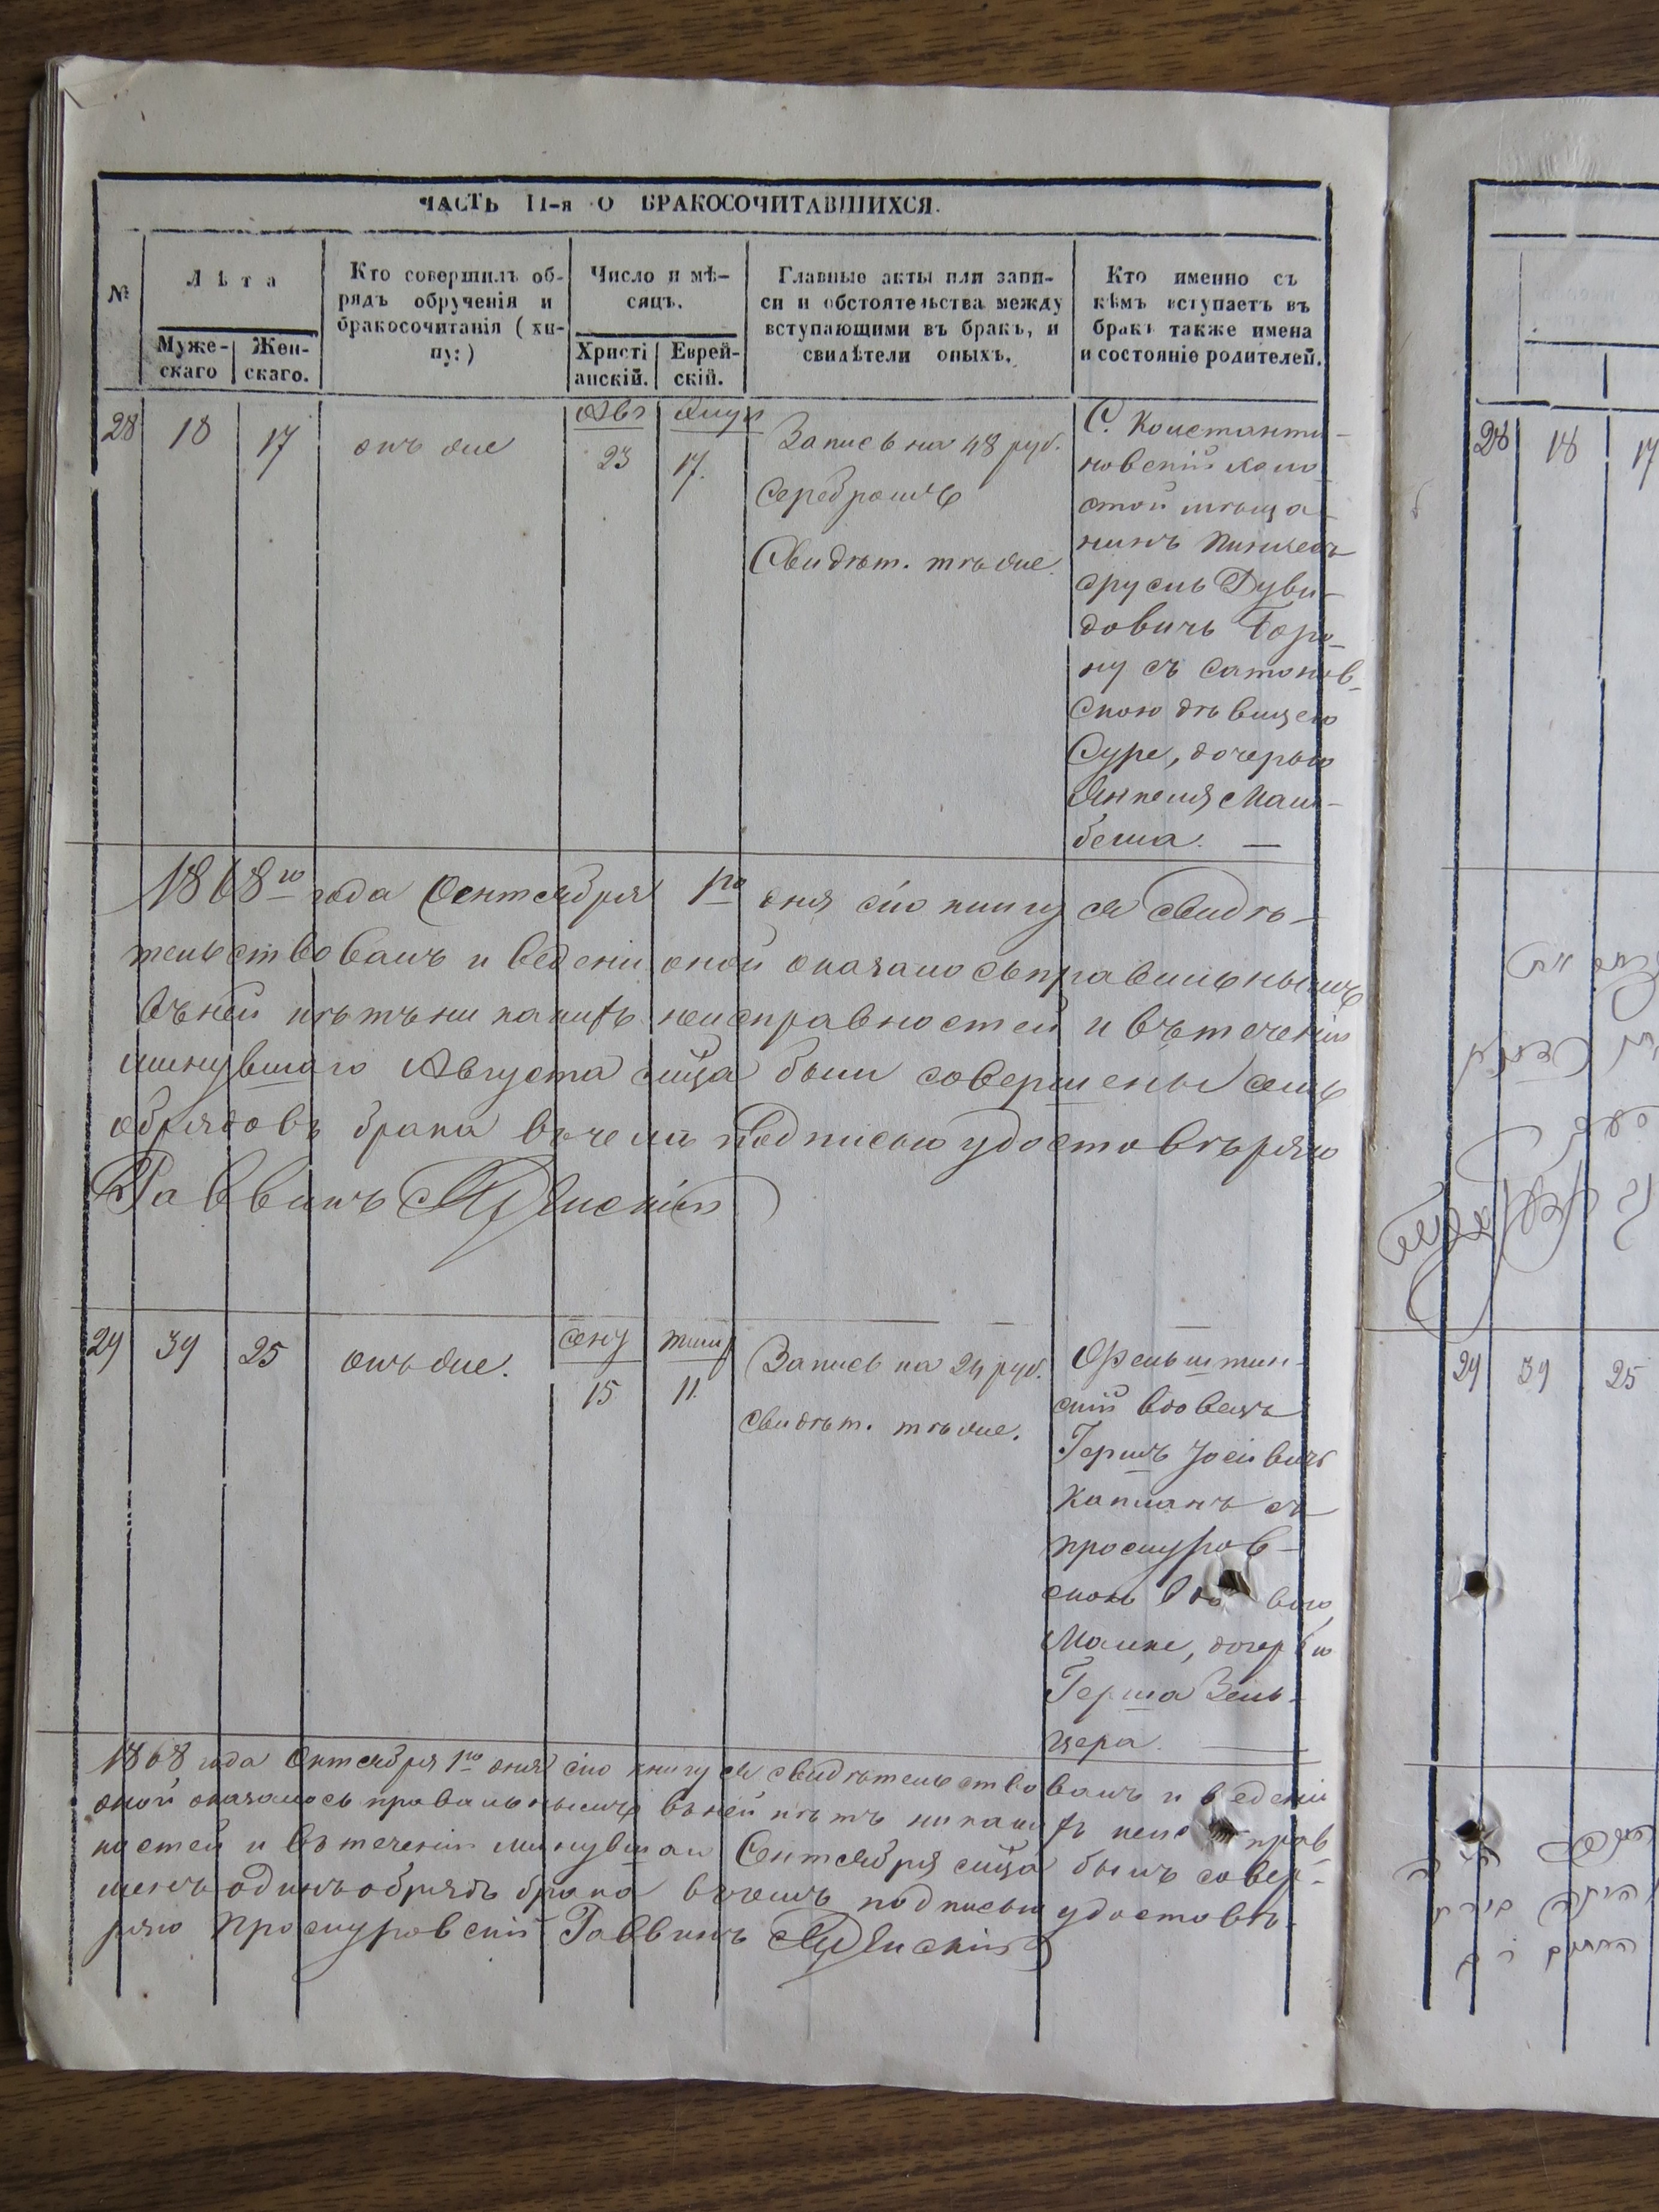 ЧАСТЬ II-я О БРАКОСОЧИТАВШИХСЯ.
№
Лѣта
Муже-
скаго
Жен-
скаго.
Кто совершилъ об-
рядъ обрученія и
бракосочитанія (хи-
пу:)
Число и мѣ-
сяцъ.
Христі
анскій.
Еврей-
скій.
Главные акты или запи-
си и обстоятельства между
вступающими въ бракъ, и
свидѣтели оныхъ.
Кто именно съ
кѣмъ вступаетъ въ
бракъ также имена
и состояніе родителей.
28
18
17
онъ же
Авг
23
17.
Запись на 48 руб.
Серебромъ
Свидѣт. тѣ же
С. Константи-
новскій холо-
стой мѣща-
нинъ Пинхасъ
Сруль Дуви-
довичъ
ну съ Сатанов-
скою дѣвицею
Суре, дочерью
Янкеля
1868го года Сентября 1го дня сію книгу я свидѣ-
тельствовалъ и веденіи оной оказалось правильнымъ
въ ней нѣтъ никакихъ неисправностей и въ теченіи
минувшаго Августа м̃ца были совершены семь
обрядовъ брака въ чемъ Подписью удостовѣряю
Раввинъ
29
39
25
онъ же.
Сент
15
тиш
11.
Запись на 24 руб.
Свидѣт. тѣ же.
Фельштин-
скій вдовецъ
Гершъ Іосіовичъ
Капланъ съ
Проскуров-
скою вдовою
Малке, дочерью
Герша Зель-
цера.
1868 года Октября 1го дня сію книгу я свидѣтельствовалъ и веденіи
оной оказалось правильнымъ въ ней нѣтъ никакихъ неисправ-
ностей и въ теченіи минувшаго Сентября м̃ца былъ совер-
шенъ одинъ обрядъ брака въ чемъ подписью удостовѣ-
ряю Проскуровскій Раввинъ
28
18
17
29
39
25